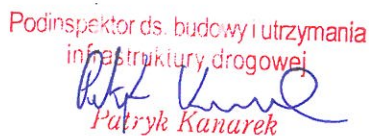 Podinspektor ds. budowy i utrzymania
infrastruktury drogowej
Patryk Kanarek